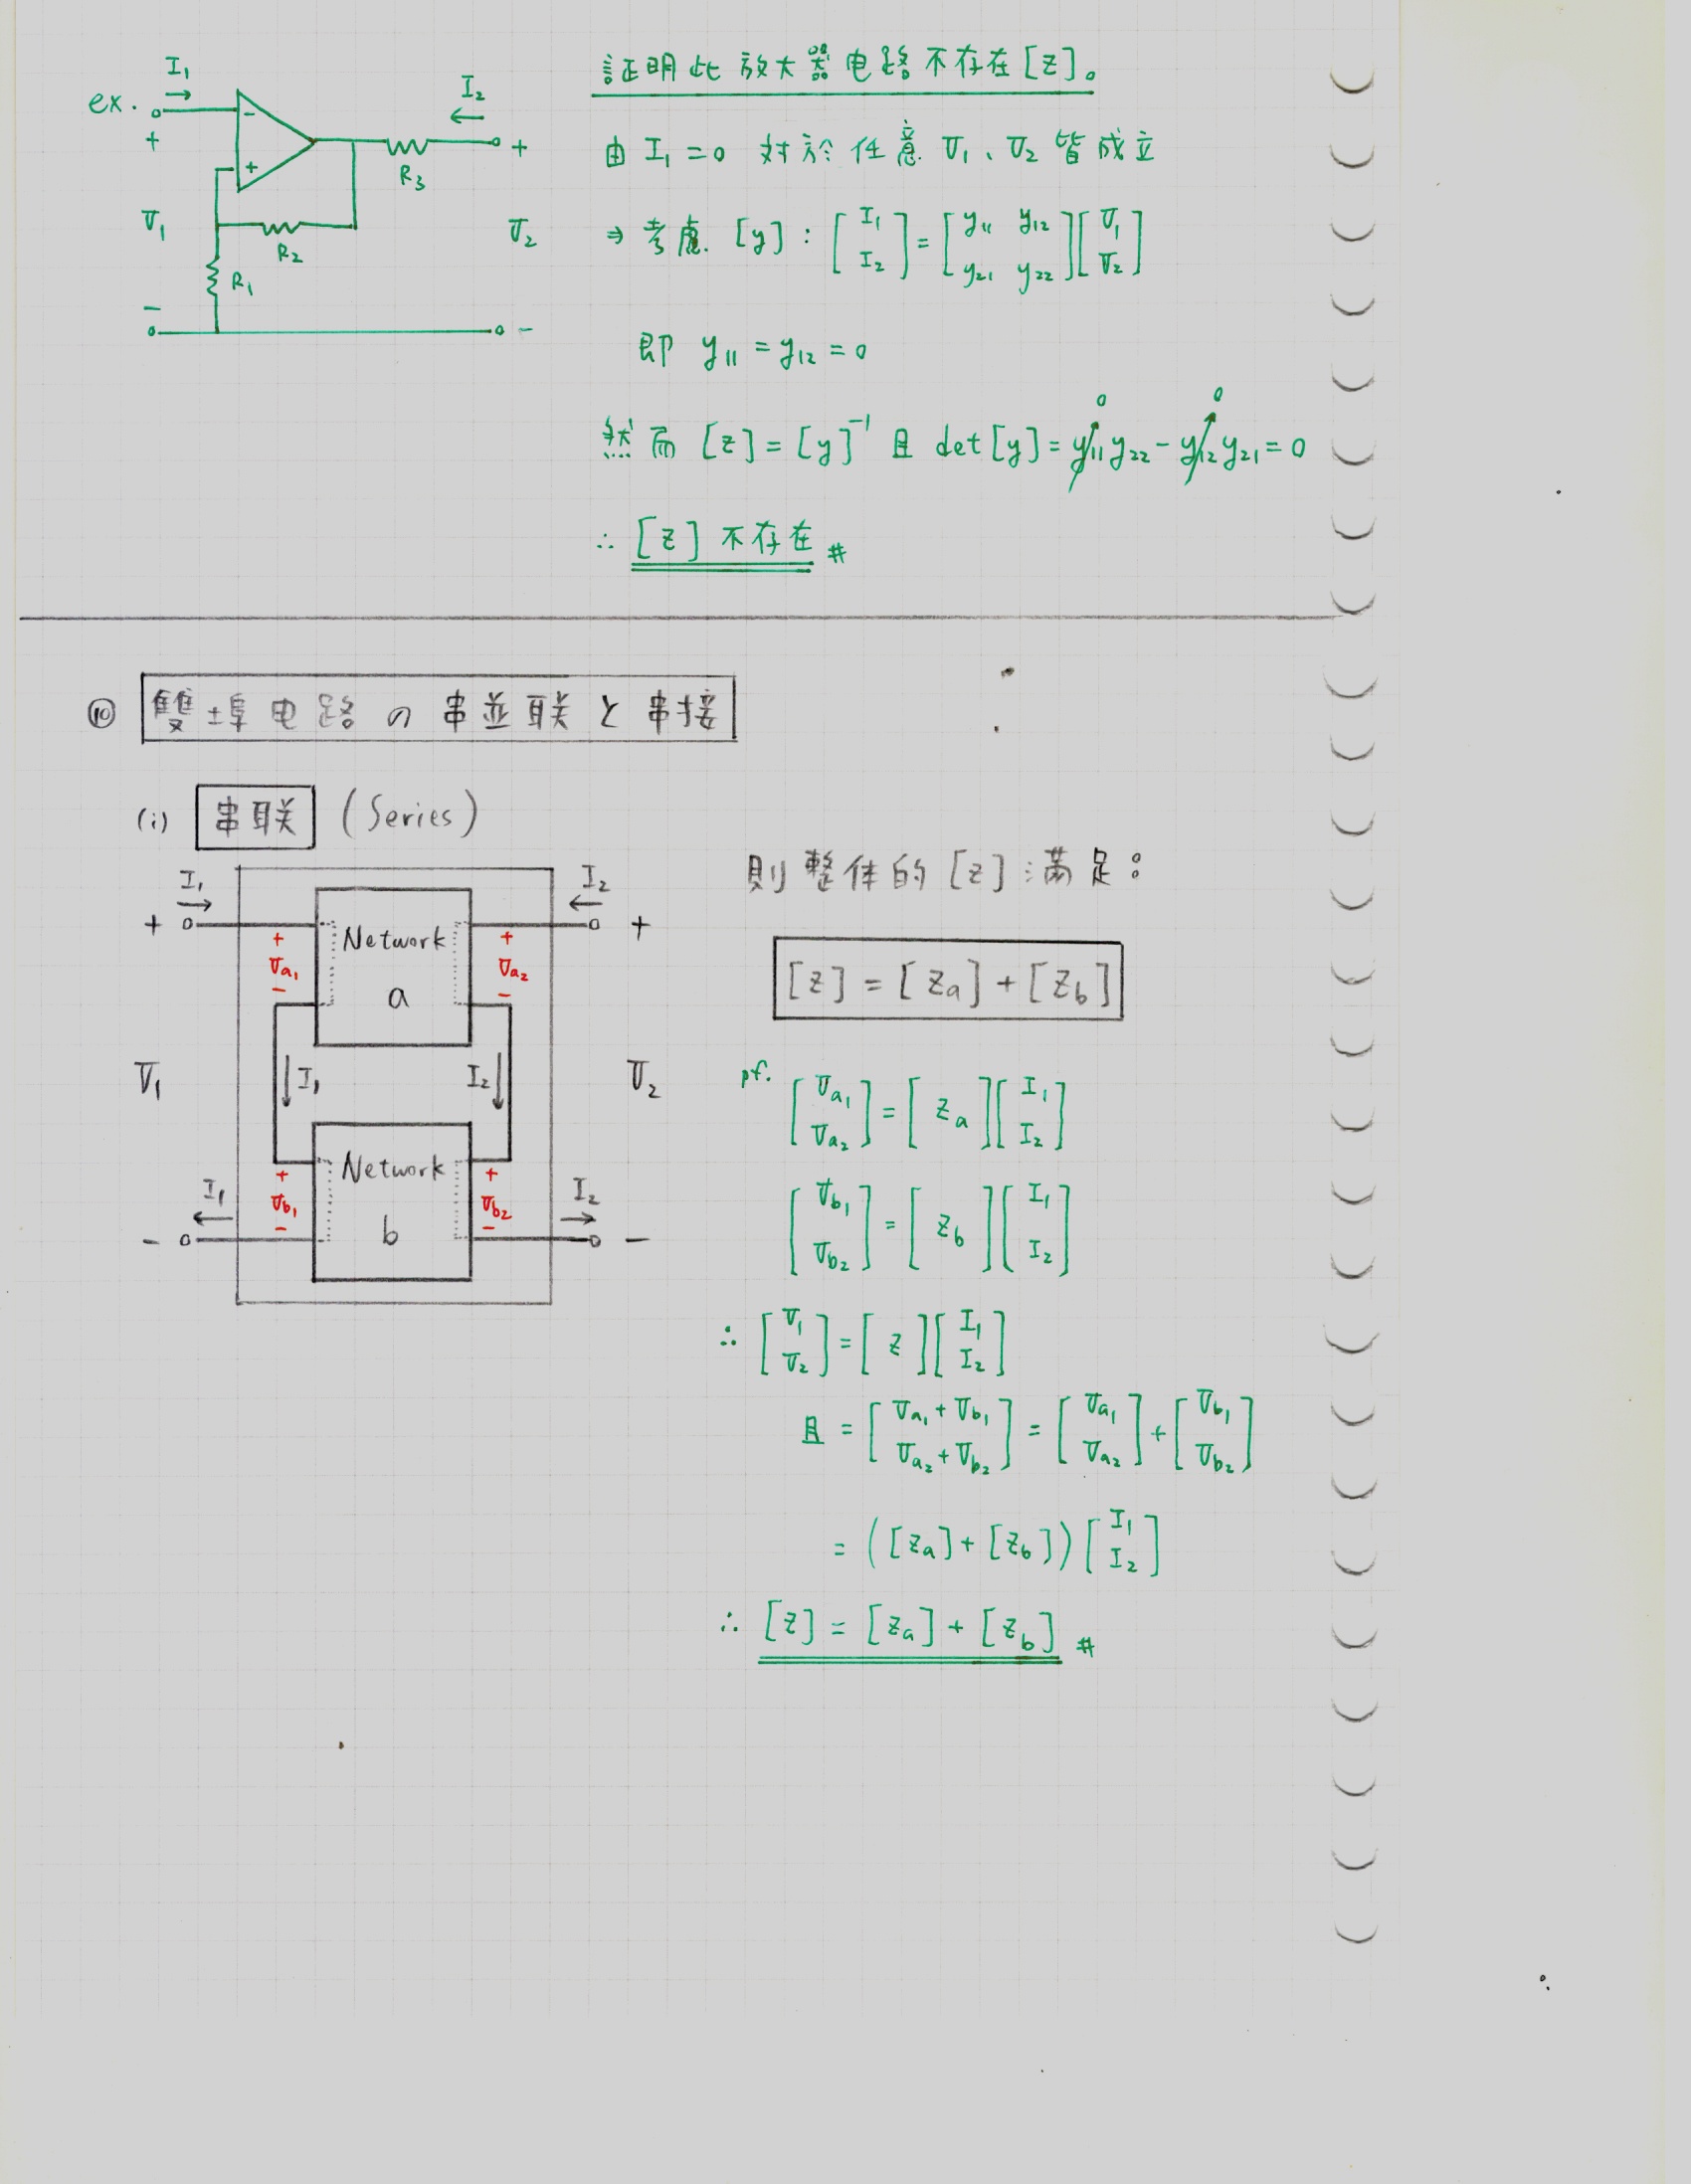 ex.
I₁
I₂
-
+
+
+
R₃
V₁
R₂
V₂
R₁
-
-
証明此放大器电路不存在[z]。
由 I₁ = 0 対於任意 V₁、V₂ 皆成立
⇒ 考慮. [y] : [I₁ I₂] = [y₁₁ y₁₂ y₂₁ y₂₂][V₁ V₂]
即 y₁₁ = y₁₂ = 0
然而 [z] = [y]⁻¹ 且 det[y] = y₁₁y₂₂ - y₁₂y₂₁ = 0
0 0
∴ [z] 不存在 #
⑩ 雙埠电路の串並联と串接
(i) 串联 (Series)
I₁
I₂
+
+
+
Va₁
-
Network
a
+
Va₂
-
V₁
I₁
I₂
V₂
I₁
+
Vb₁
-
Network
b
+
Vb₂
-
I₂
-
-
則整体的 [z] 満足：
[z] = [za] + [zb]
pf.
[Va₁ Va₂] = [za][I₁ I₂]
[Vb₁ Vb₂] = [zb][I₁ I₂]
∴ [V₁ V₂] = [z][I₁ I₂]
且 = [Va₁ + Vb₁ Va₂ + Vb₂] = [Va₁ Va₂] + [Vb₁ Vb₂]
= ([za] + [zb])[I₁ I₂]
∴ [z] = [za] + [zb] #